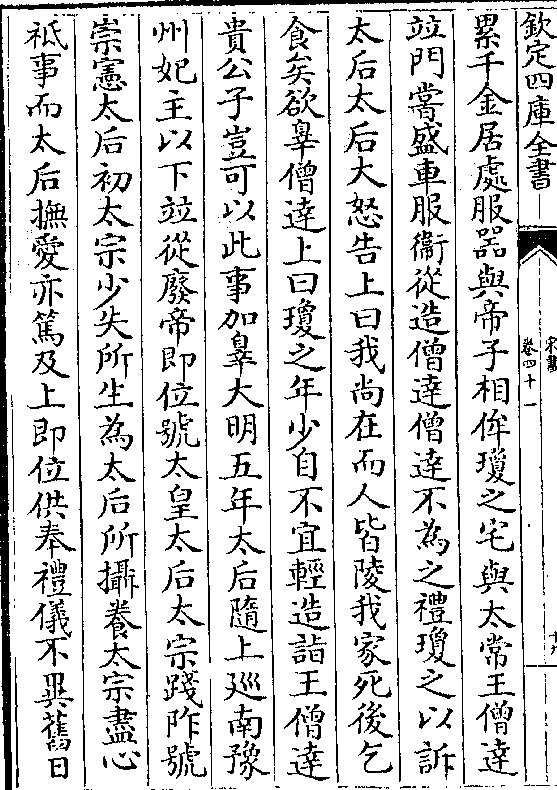 欽定四庫全書
宋書
卷四十一
十九
累千金居處服器與帝子相侔瓊之宅與太常王僧達
竝門嘗盛車服衞從造僧達僧達不為之禮瓊之以訴
太后太后大怒告上曰我尚在而人皆陵我家死後乞
食矣欲辠僧達上曰瓊之年少自不宜輕造詣王僧達
貴公子豈可以此事加辠大明五年太后隨上廵南豫
州妃主以下竝從廢帝即位號太皇太后太宗踐阼號
崇憲太后初太宗少失所生為太后所攝養太宗盡心
祗事而太后撫愛亦篤及上即位供奉禮儀不異舊日